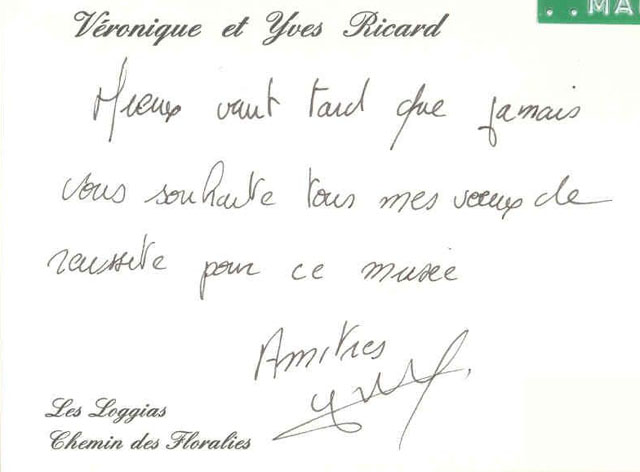 Véronique et Yves Ricard
. . MA
Mieux vaut tard que jamais
vous souhaite tous mes voeux de
reussite pour ce musée
Amities
Les Loggias
Chemin des Floralies